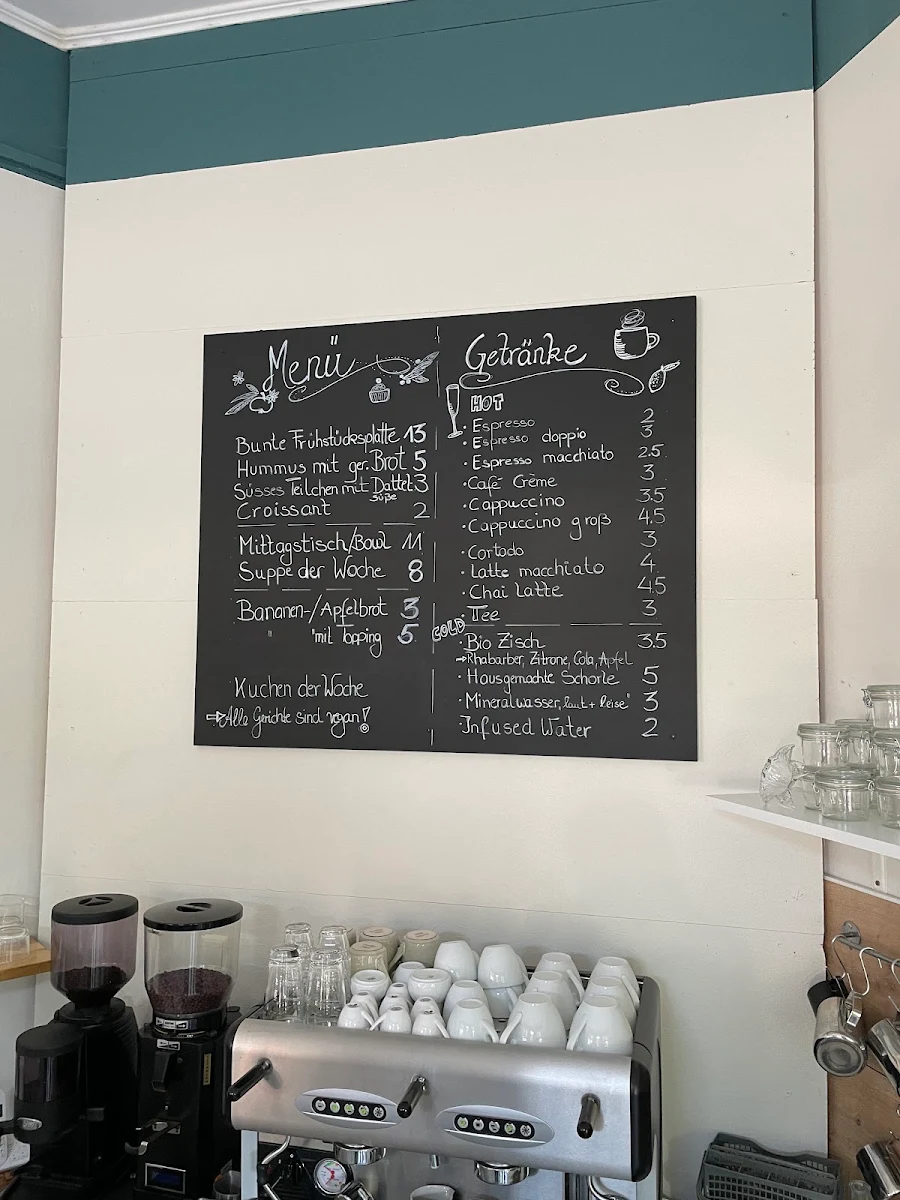 Menü
Bunte Frühstücksplatte 13
Hummus mit ger. Brot 5
Süsses Teilchen mit Dattel 3
süße
Croissant 2
Mittagstisch/Bowl 11
Suppe der Woche 8
Bananen-/Apfelbrot 3
" "mit Topping 5
Kuchen der Woche
⇒ Alle Gerichte sind vegan!
Getränke
HOT
· Espresso 2
· Espresso doppio 3
· Espresso macchiato 2.5
· Café Crème 3
· Cappuccino 3.5
· Cappuccino groß 4.5
· Cortado 3
· Latte macchiato 4
· Chai Latte 4.5
· Tee 3
COLD
· Bio Zisch 3.5
→ Rhabarber, Zitrone, Cola, Apfel
· Hausgemachte Schorle 5
· Mineralwasser "laut + leise" 3
Infused Water 2